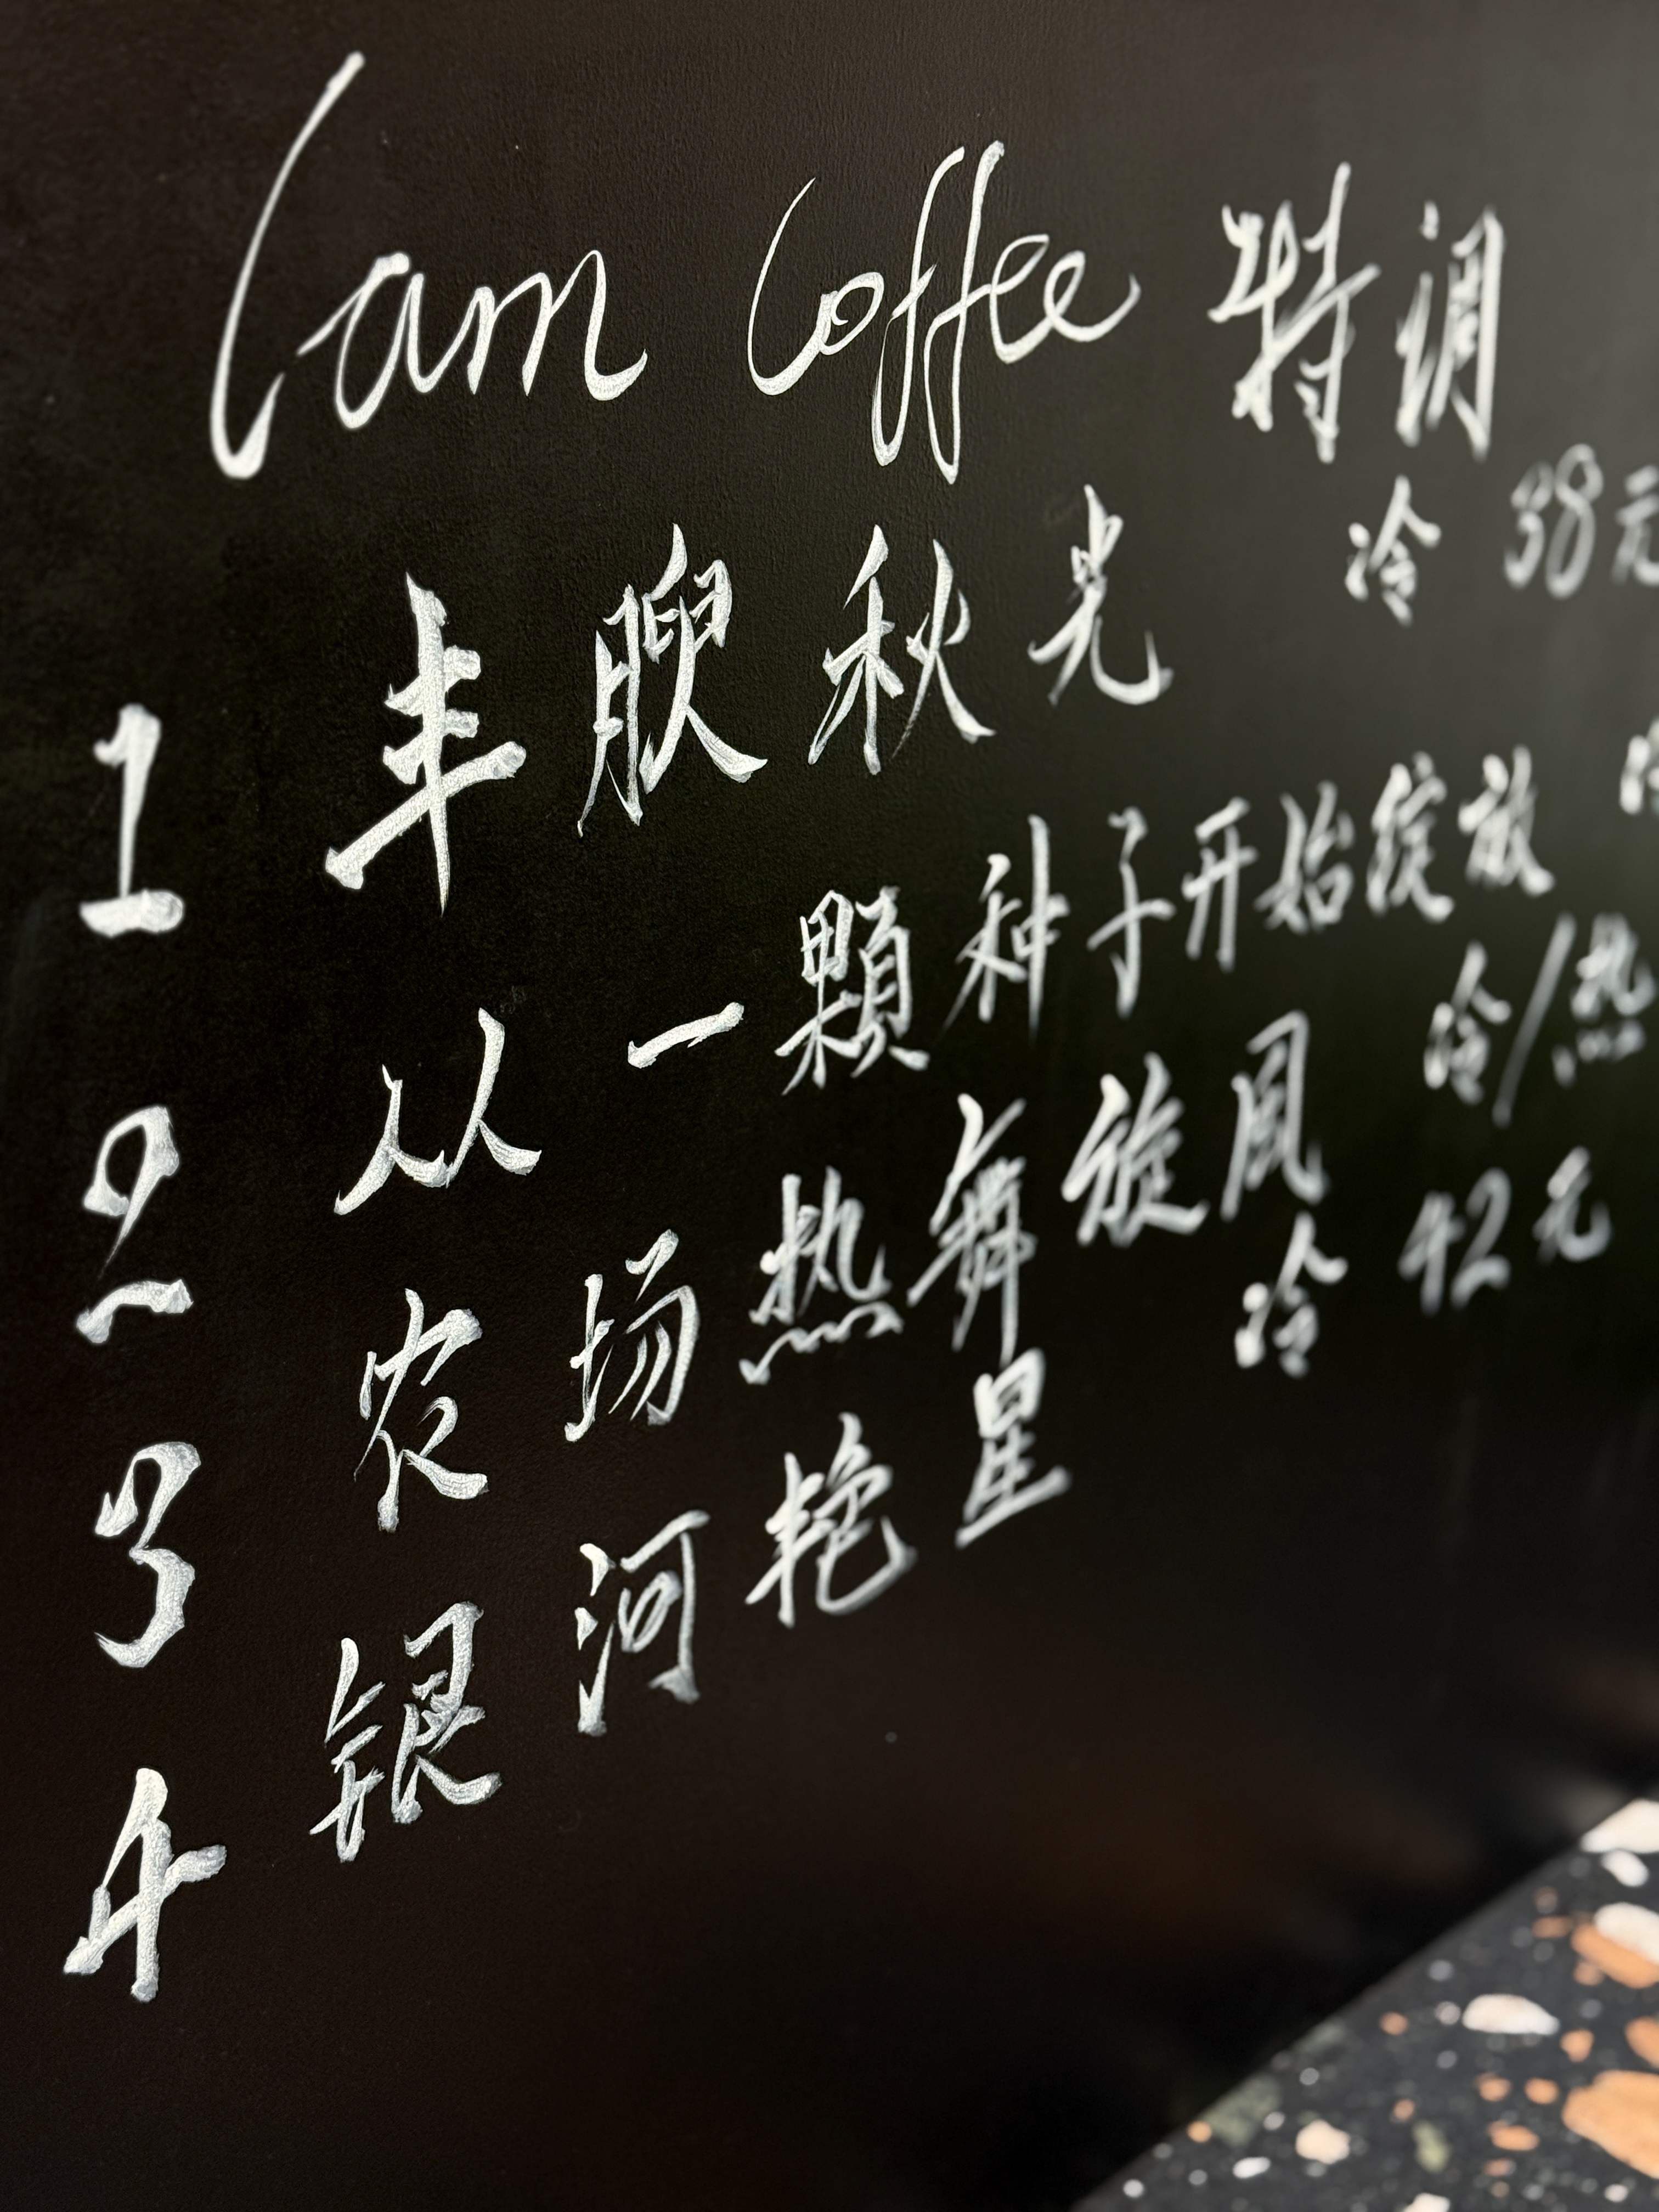 Cam Coffee 特调
1 丰腴秋光 冷 38元
2 从一顆种子开始绽放
3 农场热舞旋風 冷/热
4 银河艳星 冷 42元